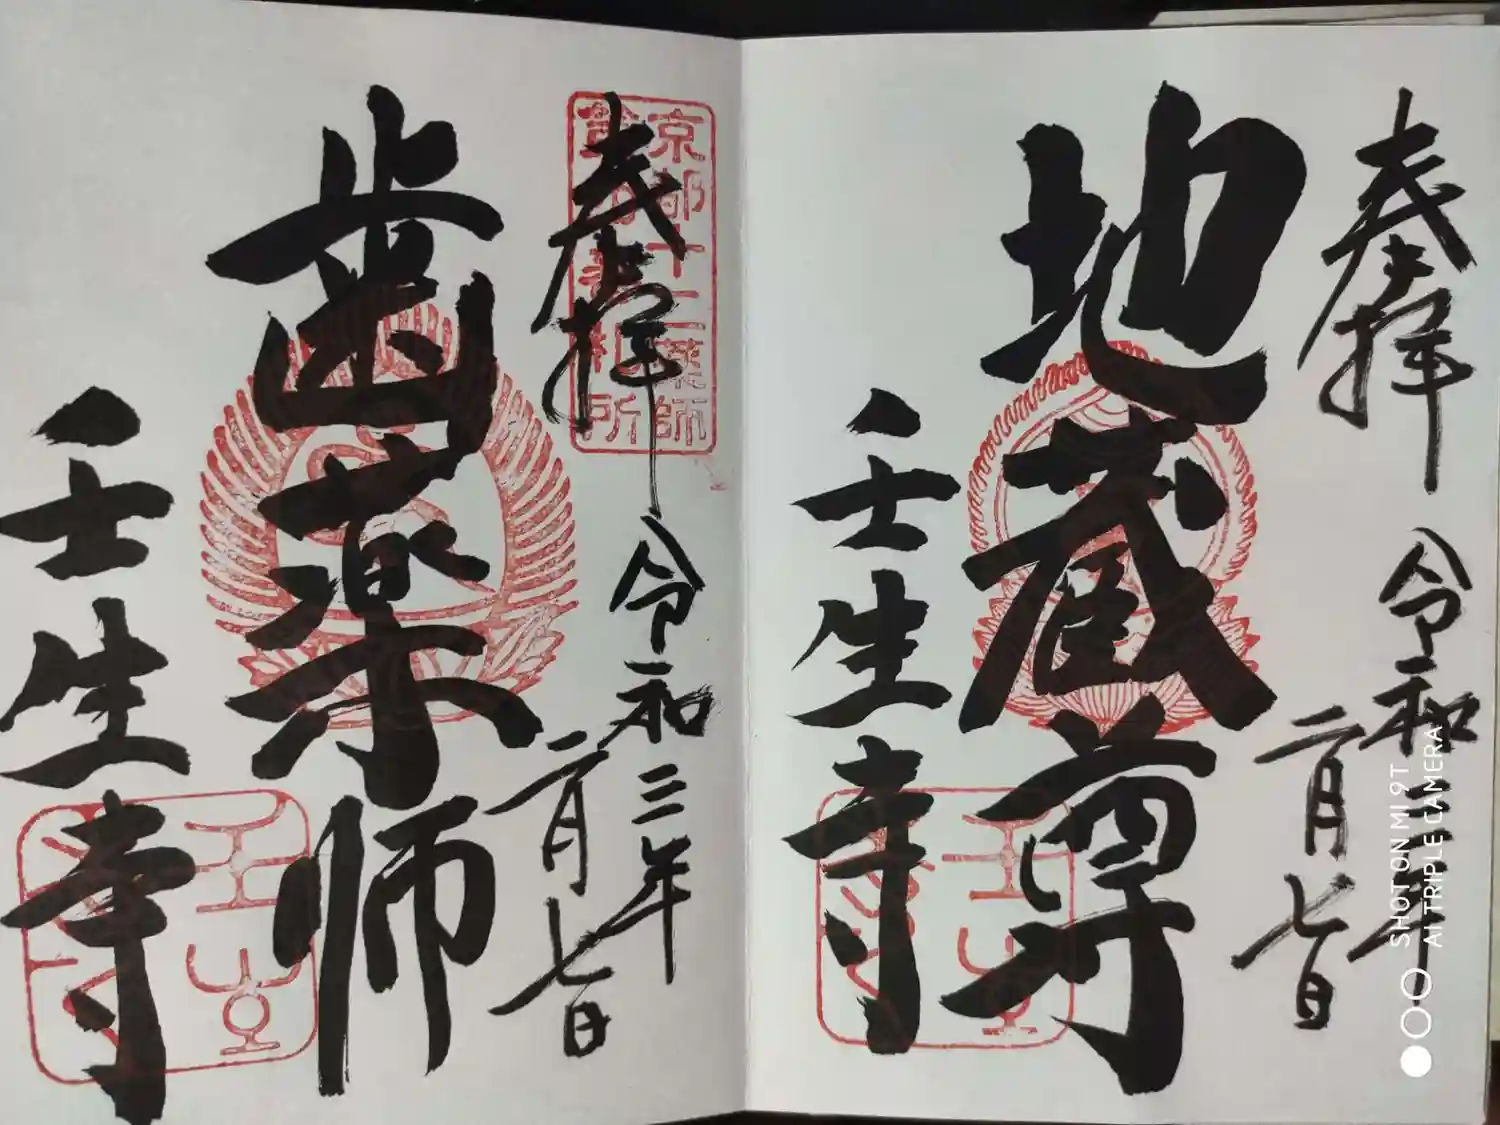 奉拝
令和三年
二月七日
地蔵尊
壬生寺
奉拝
京都十二薬師
令和三年
二月七日
歯薬師
壬生寺
SHOT ON MI 9T
AI TRIPLE CAMERA